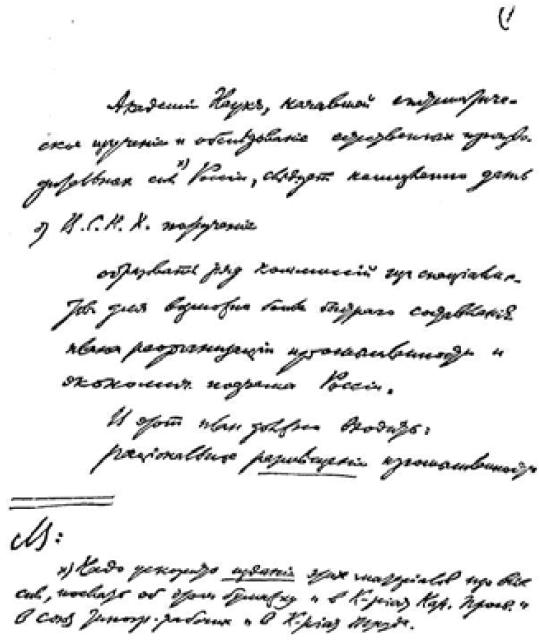 1
Академіи Наук, начавшей систематиче-
ское изученіе и обслѣдованіе естественных произво-
дительных сил х) Россіи, слѣдует немедленно дать
от В.С.Н.Х. порученіе
образовать ряд коммиссій из специалис-
тов для возможно более быстраго составленія
плана реорганизаціи промышленности и
экономич. подъема Россіи.
В этот план должно входить:
раціональное размѣщеніе промышленности
NB:
х) Надо ускорить изданіе этих матеріалов изо всех
сил, послать об этом бумажку и в К-ріат Нар. Просв. и
в союз типогр. рабочих и в К-ріат Труда.